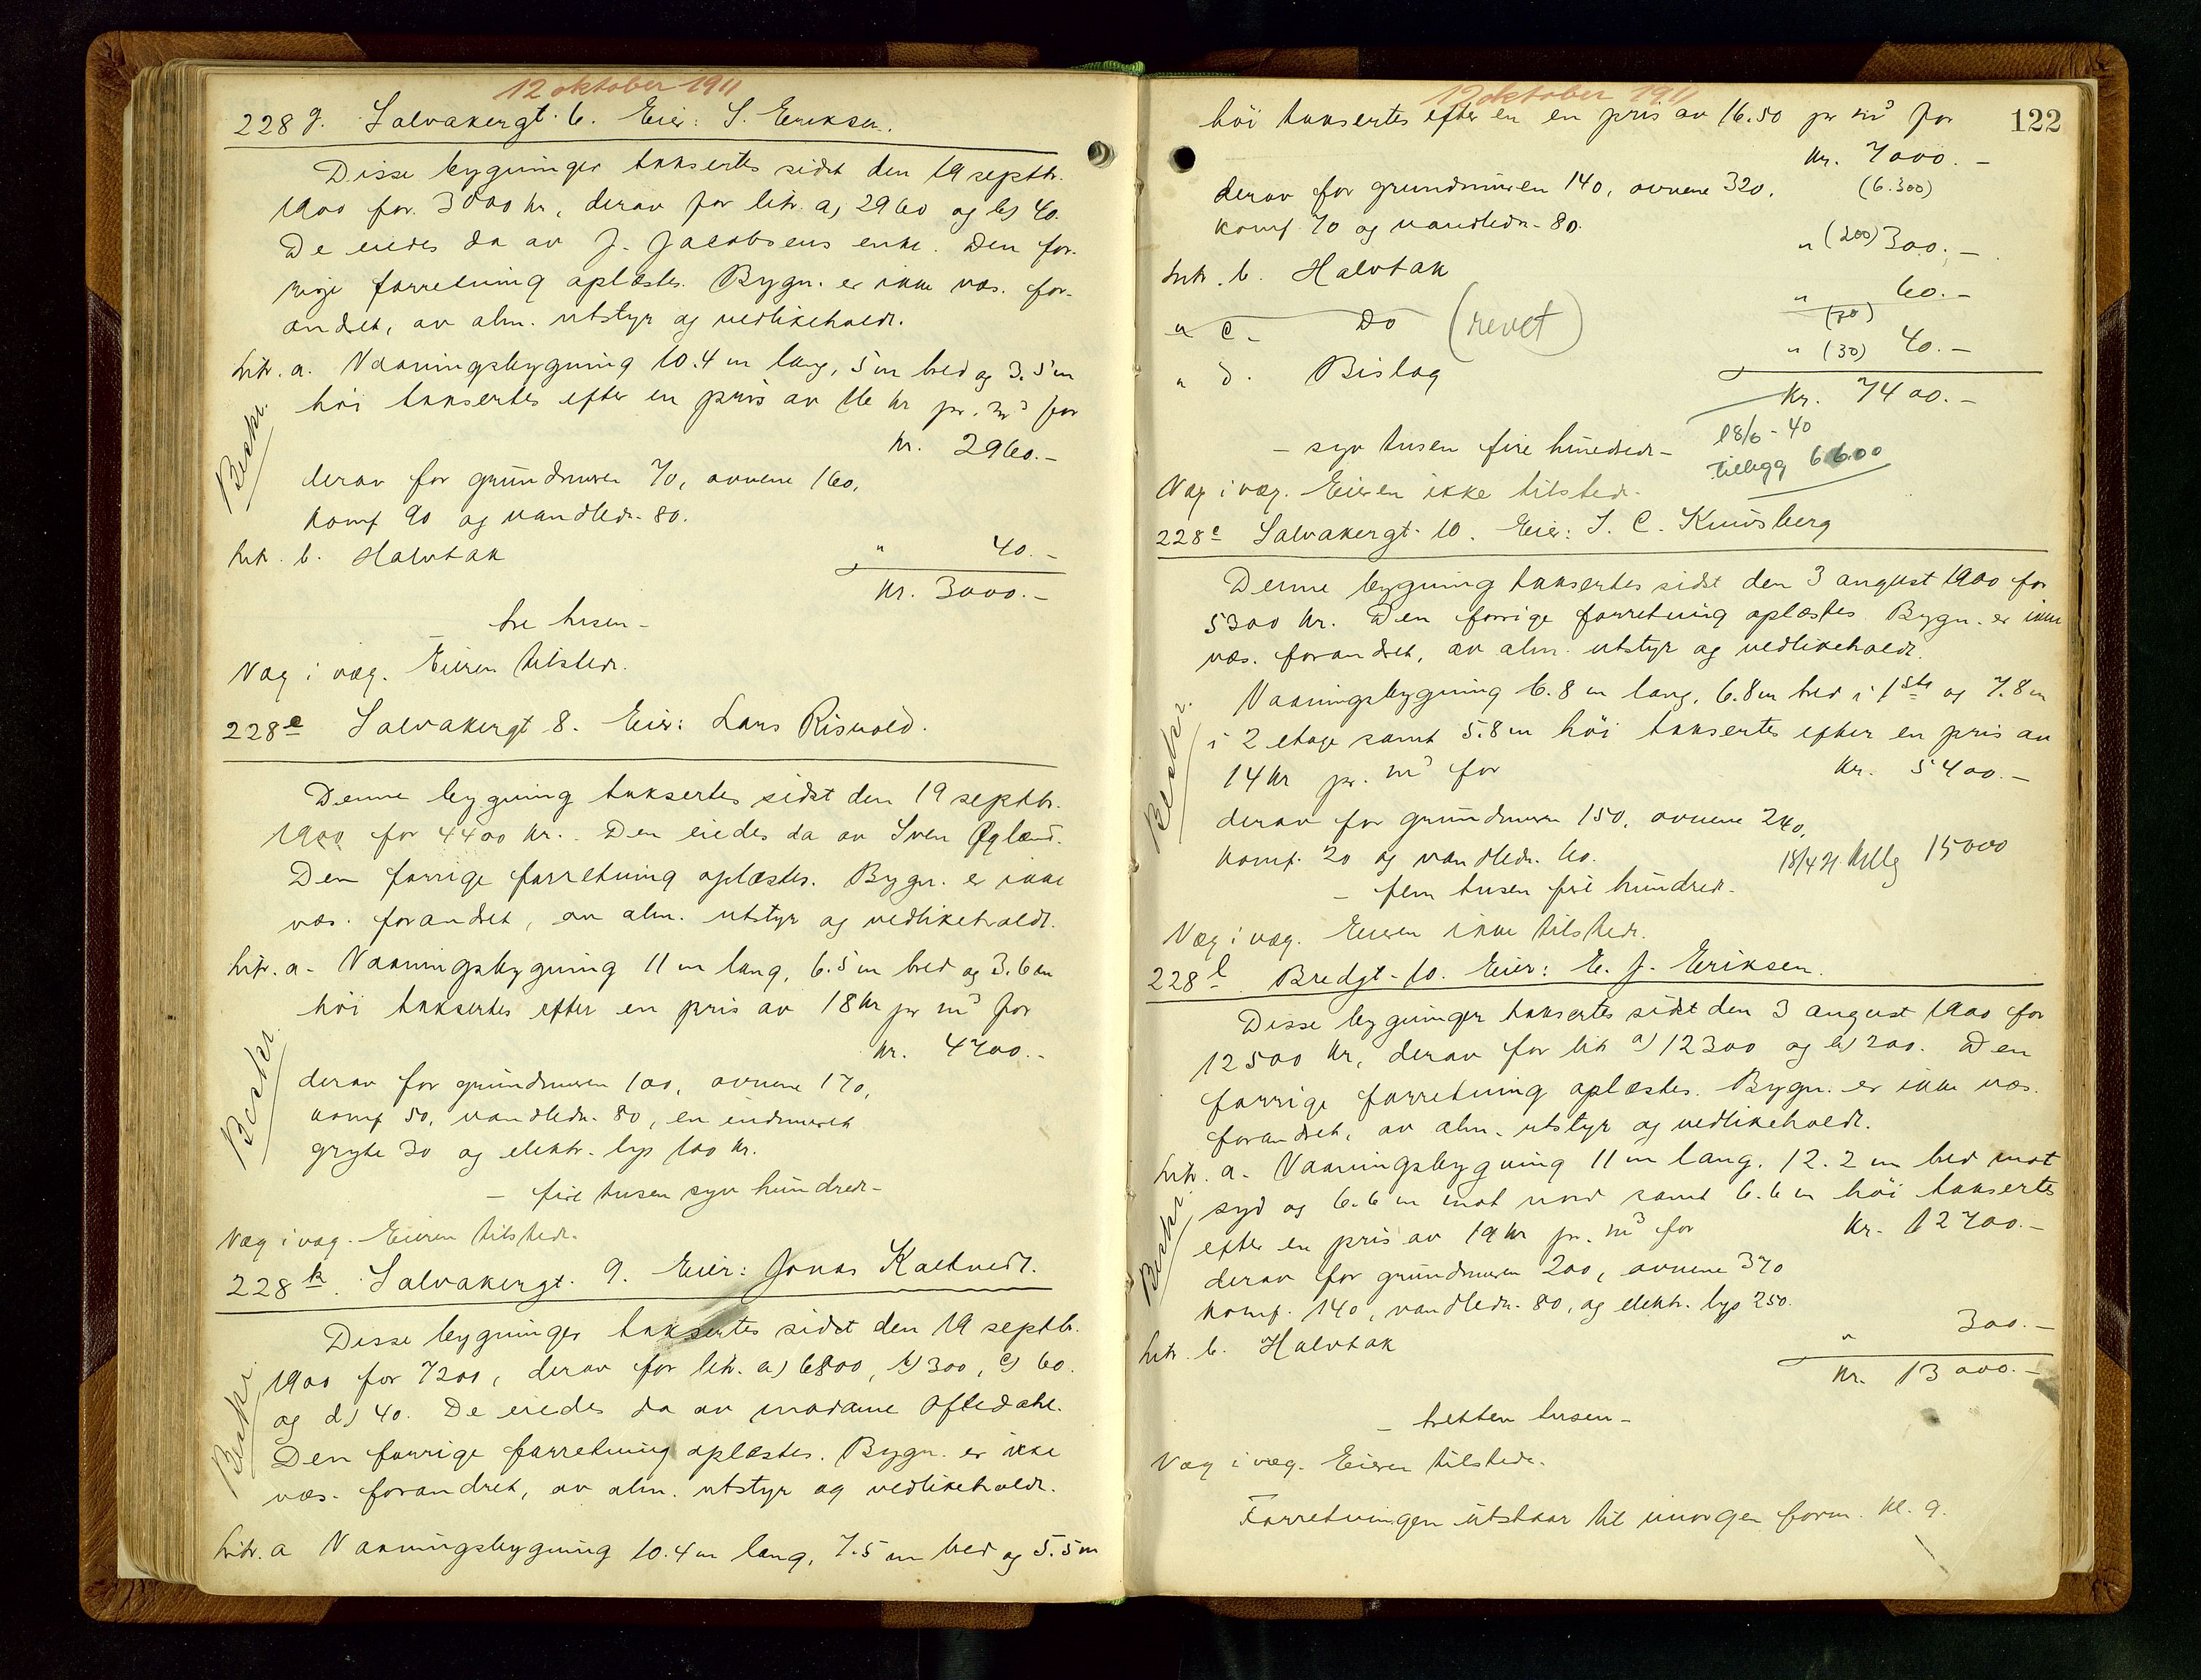 12 oktober 1911
228 g. Salvakergt. 6. Eier: S. Eriksen.
Disse bygninger taksertes sidst den 19 septbr.
1900 for 3000 kr, derav for litr. a) 2960 og b) 40.
De eiedes da av J. Jacobsens enke. Den for-
rige forretning oplæstes. Bygn. er ikke væs. for-
andret, av alm. utstyr og vedlikeholdt.
Litr. a. Vaaningsbygning 10.4 m lang, 5 m bred og 3.5 m
høi taksertes efter en pris av 16 kr pr. m³ for
kr. 2960.-
Beskr.
derav for grundmuren 70, ovnene 160,
komf 90 og vandledn. 80.
Litr. b. Halvtak " 40.-
kr. 3000.-
- tre tusen -
Væg i væg. Eieren tilstede.
228 e Salvakergt 8. Eier: Lars Risvold.
Denne bygning taksertes sidst den 19 septbr.
1900 for 4400 kr. Den eiedes da av Sven Øgland.
Den forrige forretning oplæstes. Bygn. er ikke
væs. forandret, av alm. utstyr og vedlikeholdt.
Litr. a. Vaaningsbygning 11 m lang, 6.5 m bred og 3.6 m
høi taksertes efter en pris av 18 kr pr m³ for
kr. 4700.-
Beskr.
derav for grundmuren 100, ovnene 170,
komf 50, vandledn. 80, en indmuret
gryte 30 og elektr. lys 100 kr.
- fire tusen syv hundrede -
Væg i væg. Eieren tilstede.
228 k. Salvakergt. 9. Eier: Jonas Kaltvedt.
Disse bygninger taksertes sidst den 19 septb.
1900 for 7200, derav for litr. a) 6800, b) 300, c) 60.
og d) 40. De eiedes da av madame Oftedahl.
Beskr.
Den forrige forretning oplæstes. Bygn. er ikke
væs. forandret, av alm. utstyr og vedlikeholdt.
Litr. a Vaaningsbygning 10.4 m lang, 7.5 m bred og 5.5 m
12 oktober 1911
122
høi taksertes efter en en pris av 16.50 pr m³ for
kr. 7000.-
derav for grundmuren 140, ovnene 320, (6.300)
komf. 70 og vandledn. 80.
Litr. b. Halvtak " (200) 300.-
" c. Do (revet) " 60.-
" d. Bislag " (30) 40.-
kr. 7400.-
18/6-40
- syv tusen fire hundrede -
tillegg 6600
Væg i væg. Eieren ikke tilstede.
228 e Salvakergt. 10. Eier: S. C. Knudsberg
Denne bygning taksertes sidst den 3 august 1900 for
5300 kr. Den forrige forretning oplæstes. Bygn. er ikke
væs. forandret, av alm. utstyr og vedlikeholdt.
Vaaningsbygning 6.8 m lang, 6.8 m bred i 1ste og 7.8 m
i 2 etage samt 5.8 m høi taksertes efter en pris av
14 kr pr. m³ for kr. 5400.-
Beskr.
derav for grundmuren 150, ovnene 240,
komf. 20 og vandledn. 60.
15000
- fem tusen fire hundrede -
Væg i væg. Eieren ikke tilstede.
228 l. Bredgt. 10. Eier: E. J. Eriksen.
Disse bygninger taksertes sidst den 3 august 1900 for
12500 kr, derav for litr a) 12300 og b) 200. Den
forrige forretning oplæstes. Bygn. er ikke væs.
forandret, av alm. utstyr og vedlikeholdt.
Litr. a. Vaaningsbygning 11 m lang, 12.2 m bred mot
syd og 6.6 m mot nord samt 6.6 m høi taksertes
efter en pris av 19 kr pr. m³ for kr. 12700.-
Beskr.
derav for grundmuren 200, ovnene 370
komf. 140, vandledn. 80, og elektr. lys 250.
Litr. b. Halvtak " 300.-
kr. 13000.-
- tretten tusen -
Væg i væg. Eieren tilstede.
Forretningen utstaar til imorgen form. kl. 9.